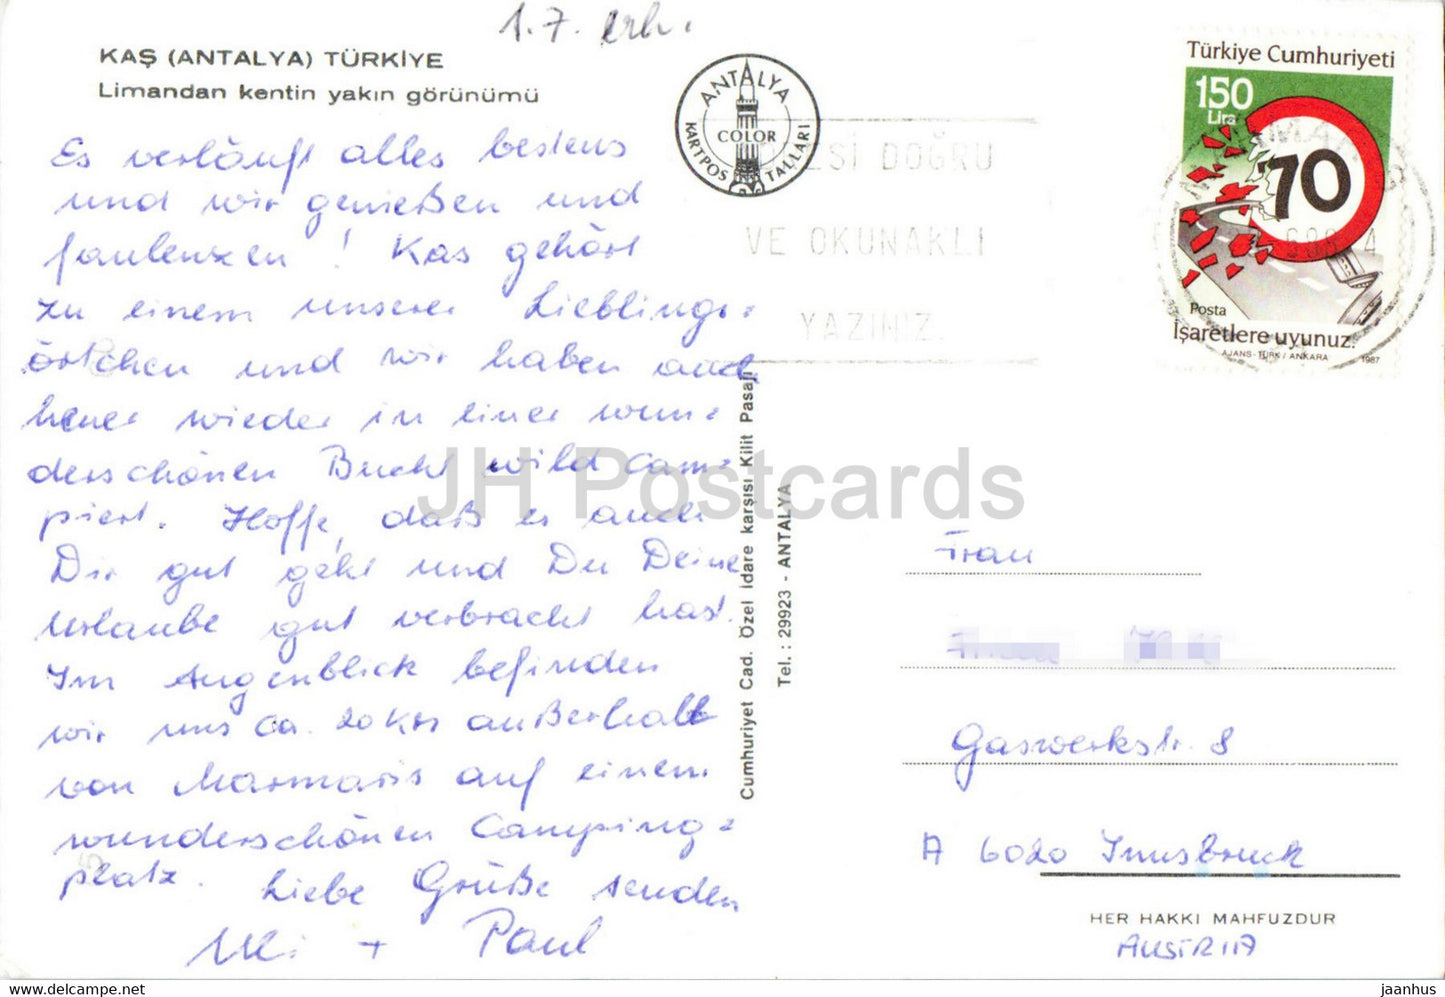 1.7. erh.
KAŞ (ANTALYA) TÜRKİYE
Limandan kentin yakın görünümü
Es verläuft alles bestens
und wir genießen und
faulenzen! Kas gehört
zu einem unserer Lieblings=
örtchen und wir haben auch
heuer wieder in einer wun=
derschönen Bucht wild cam=
piert. Hoffe, daß es auch
Dir gut geht und Du Deine
Urlaube gut verbracht hast.
Im Augenblick befinden
wir uns ca. 20 km außerhalb
von Marmaris auf einem
wunderschönen Camping=
platz. Liebe Grüße senden
Uli + Paul
ANTALYA
COLOR
KARTPOSTALLARI
DOĞRU
VE OKUNAKLI
YAZINIZ.
Cumhuriyet Cad. Özel idare karşısı Kilit Pasajı
Tel. : 29923 - ANTALYA
Türkiye Cumhuriyeti
150
Lira
70
Posta
İşaretlere uyunuz.
AJANS-TÜRK / ANKARA 1987
Frau
Gaswerkstr. 8
A 6020 Innsbruck
HER HAKKI MAHFUZDUR
AUSTRIA
JH Postcards
hipstamp.com/store/jhpostcards
jaanhus